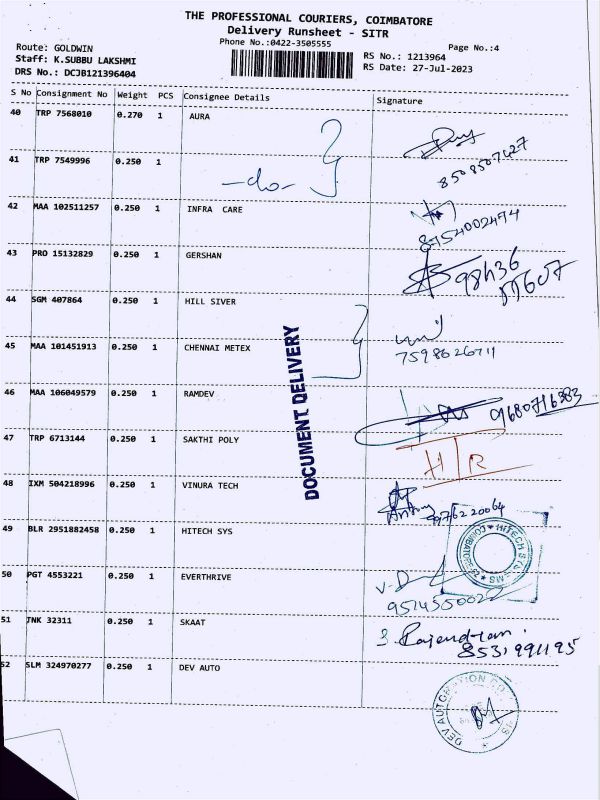 THE PROFESSIONAL COURIERS, COIMBATORE
Delivery Runsheet - SITR
Phone No.:0422-3505555
Page No.:4
Route: GOLDWIN
Staff: K.SUBBU LAKSHMI
DRS No.: DCJB121396404
RS No.: 1213964
RS Date: 27-Jul-2023
S No Consignment No Weight PCS Consignee Details Signature
40 TRP 7568010 0.270 1 AURA
8508507427
41 TRP 7549996 0.250 1
-do-
42 MAA 102511257 0.250 1 INFRA CARE
8754002474
43 PRO 15132829 0.250 1 GERSHAN
44 SGM 407864 0.250 1 HILL SIVER
45 MAA 101451913 0.250 1 CHENNAI METEX
7598626711
46 MAA 106049579 0.250 1 RAMDEV
9680716383
47 TRP 6713144 0.250 1 SAKTHI POLY
H/R
48 IXM 504218996 0.250 1 VINURA TECH
Antony 9976220064
49 BLR 2951882458 0.250 1 HITECH SYS
HITECH SYSTEMS COIMBATORE
50 PGT 4553221 0.250 1 EVERTHRIVE
51 JNK 32311 0.250 1 SKAAT
S. Rajendran.
8531991195
52 SLM 324970277 0.250 1 DEV AUTO
DEV AUTOMATION
DOCUMENT DELIVERY